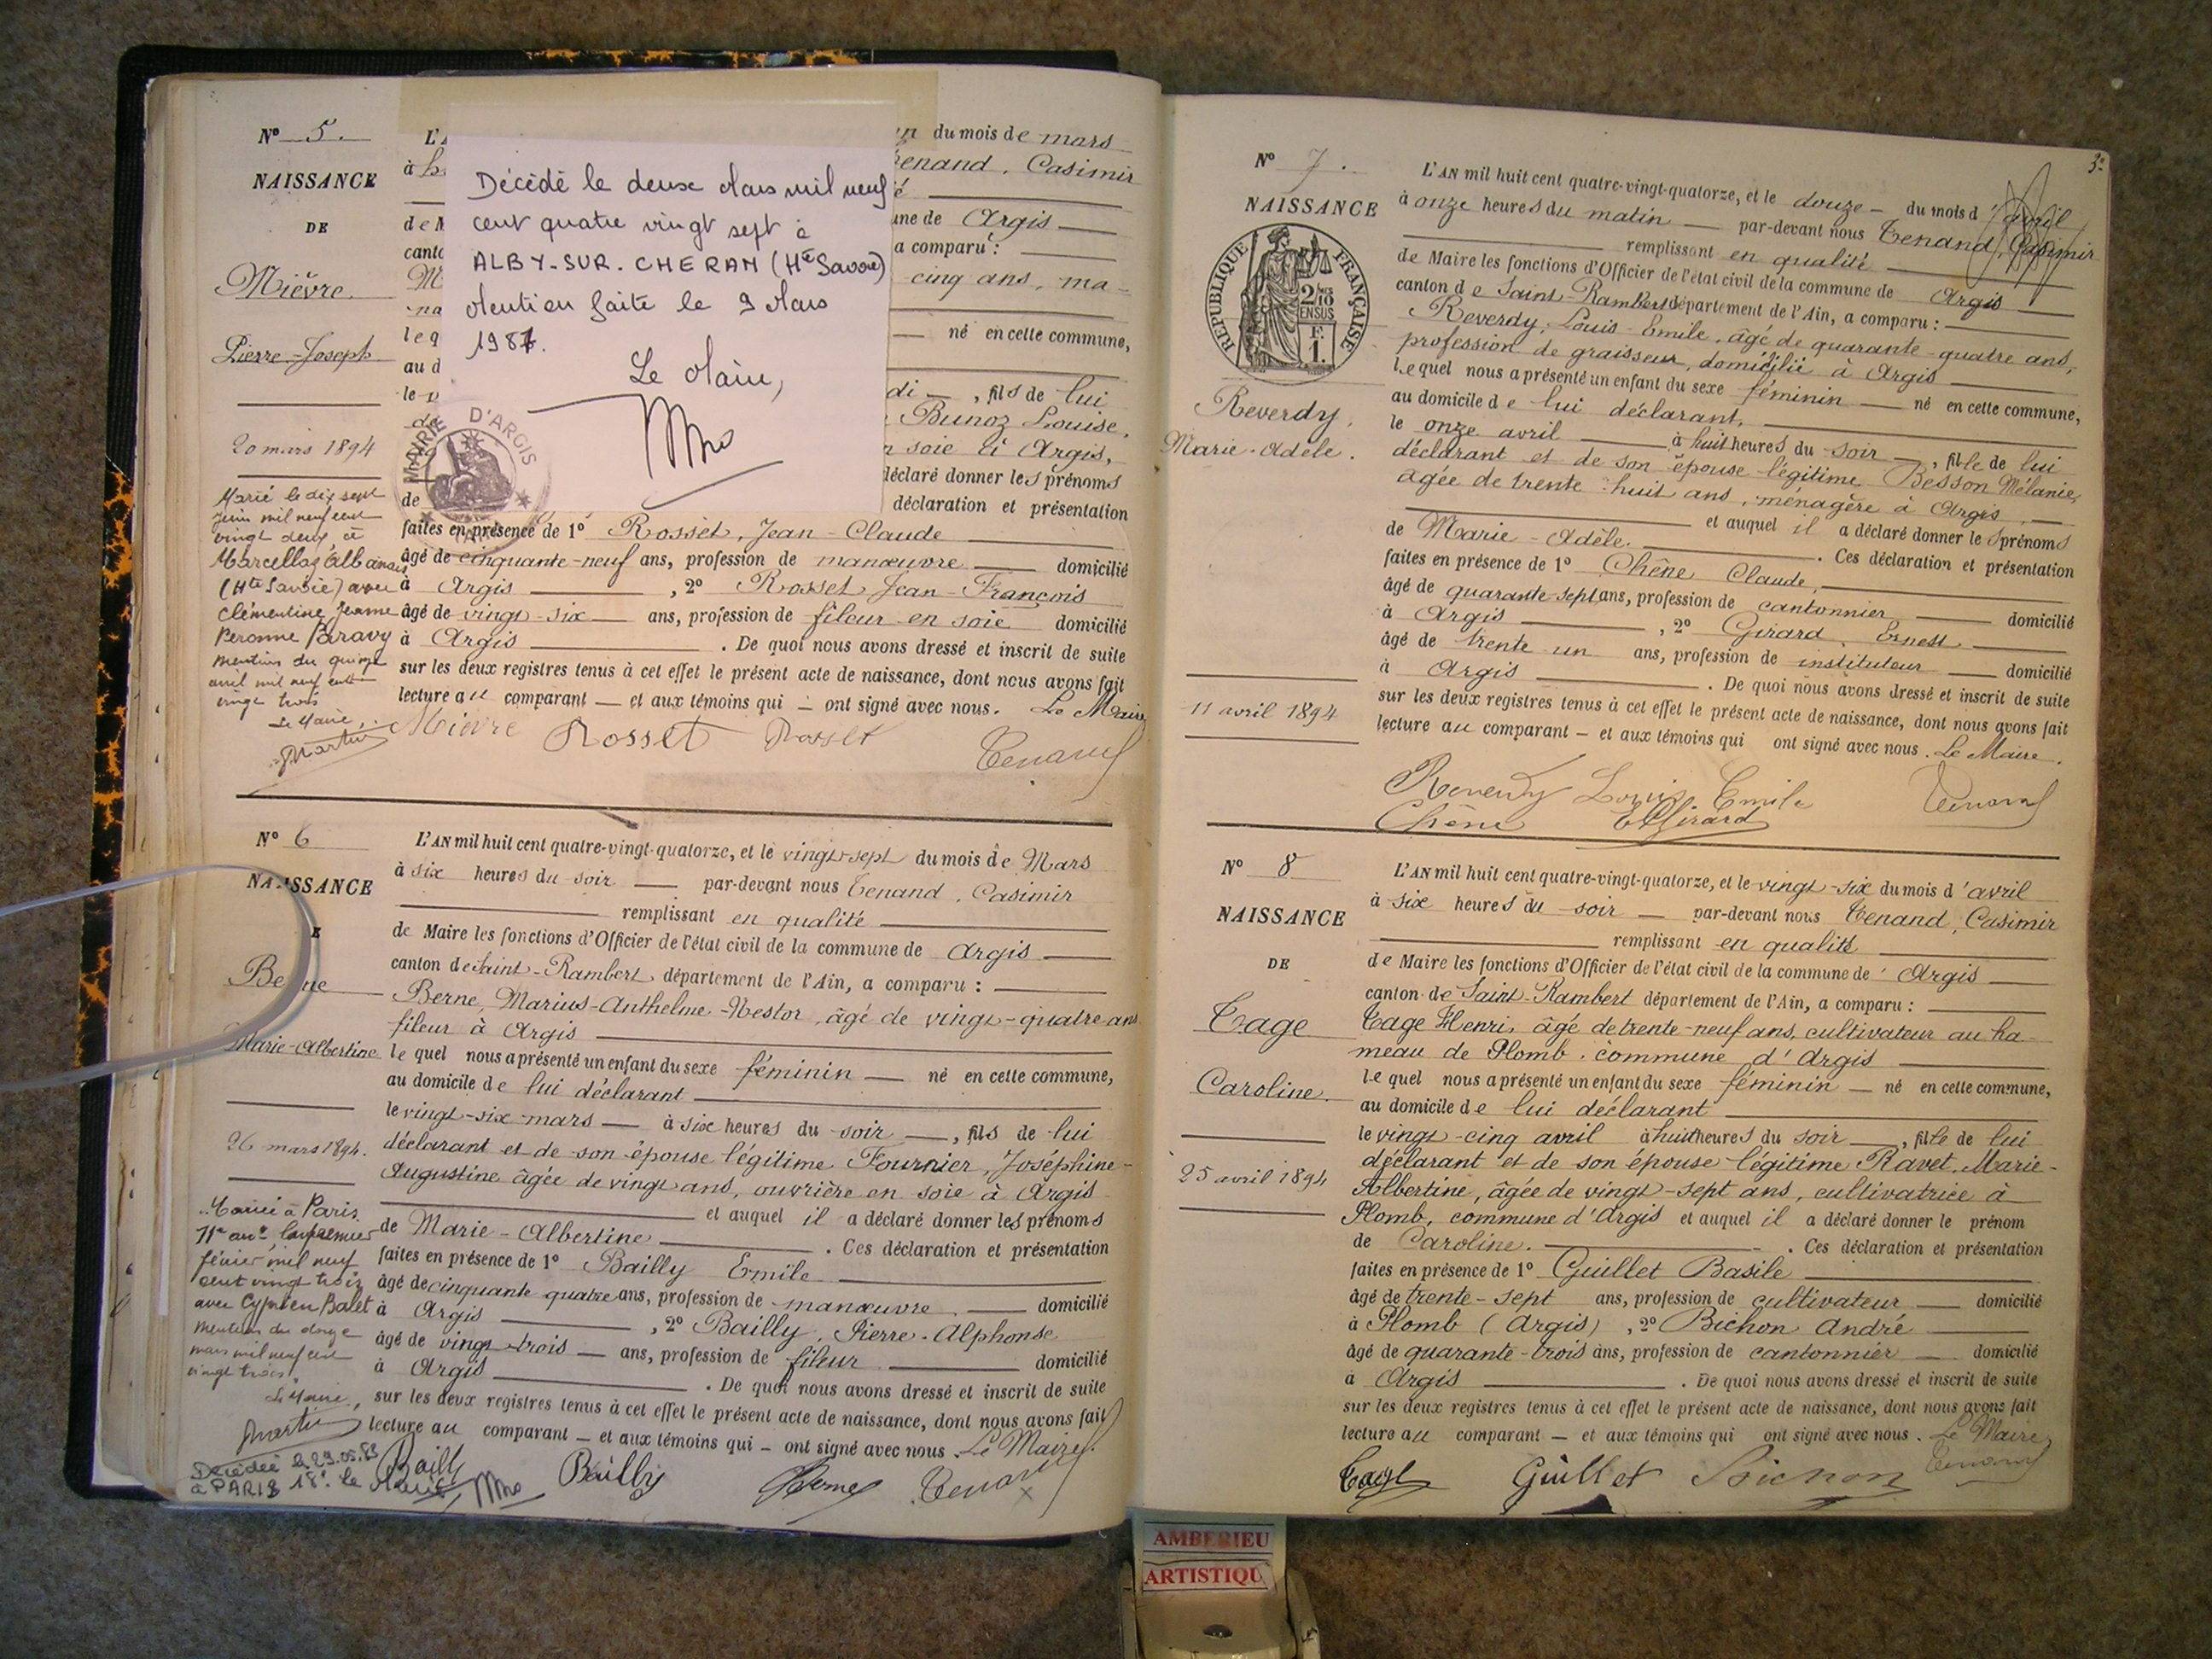 N° 5.
NAISSANCE
DE
Mièvre
Pierre-Joseph
20 mars 1894
Marié le dix sept
juin mil neuf cent
vingt deux à
Marcellaz Albanais
(Hte Savoie) avec
Clémentine Jeanne
Peronne Paravy
mention du quinze
avril mil neuf cent
vingt trois
Le Maire,
Martin
Décédé le deux Mars mil neuf
cent quatre vingt sept à
ALBY-SUR-CHERAN (Hte Savoie)
Mention faite le 9 Mars
1987.
Le Maire,
MAIRIE D'ARGIS
L'A
du mois de mars
à
Tenand, Casimir
de M
une de Argis
canto
a comparu :
M
cinq ans, ma-
na
le q
né en cette commune,
au d
le
di , fils de lui
Bunoz Louise,
n soie à Argis,
déclaré donner les prénoms
de
déclaration et présentation
faites en présence de 1° Rosset, Jean-Claude
âgé de cinquante-neuf ans, profession de manœuvre domicilié
à Argis , 2° Rosset Jean-François
âgé de vingt-six ans, profession de fileur en soie domicilié
à Argis . De quoi nous avons dressé et inscrit de suite
sur les deux registres tenus à cet effet le présent acte de naissance, dont nous avons fait
lecture au comparant — et aux témoins qui — ont signé avec nous. Le Maire
Mièvre Rosset Rosset Tenand
N° 6
NAISSANCE
E
Berne
Marie-Albertine
26 mars 1894.
Mariée à Paris
11e arrt le premier
février mil neuf
cent vingt trois
avec Cyprien Balet
mention du douze
mars mil neuf cent
vingt trois
Le Maire,
Martin
Décédée le 29.05.83
à PARIS 18e. le Maire,
L'AN mil huit cent quatre-vingt-quatorze, et le vingt-sept du mois de Mars
à six heures du soir — par-devant nous Tenand, Casimir
remplissant en qualité
de Maire les fonctions d'Officier de l'état civil de la commune de Argis
canton de Saint-Rambert département de l'Ain, a comparu :
Berne, Marius-Anthelme-Nestor, âgé de vingt-quatre ans
fileur à Argis
le quel nous a présenté un enfant du sexe féminin — né en cette commune,
au domicile de lui déclarant
le vingt-six mars — à six heures du soir —, fils de lui
déclarant et de son épouse légitime Fournier, Joséphine-
Augustine âgée de vingt ans, ouvrière en soie à Argis
et auquel il a déclaré donner les prénoms
de Marie-Albertine . Ces déclaration et présentation
faites en présence de 1° Bailly Emile
âgé de cinquante quatre ans, profession de manœuvre domicilié
à Argis , 2° Bailly, Pierre-Alphonse
âgé de vingt-trois — ans, profession de fileur domicilié
à Argis . De quoi nous avons dressé et inscrit de suite
sur les deux registres tenus à cet effet le présent acte de naissance, dont nous avons fait
lecture au comparant — et aux témoins qui — ont signé avec nous. Le Maire.
Bailly Bailly Berne Tenand
3e
N° 7.
NAISSANCE
RÉPUBLIQUE FRANÇAISE
2/10 EN SUS
F. 1.
Reverdy,
Marie-Adèle.
11 avril 1894
L'AN mil huit cent quatre-vingt-quatorze, et le douze — du mois d'avril
à onze heures du matin — par-devant nous Tenand, Casimir
remplissant en qualité
de Maire les fonctions d'Officier de l'état civil de la commune de Argis
canton de Saint-Rambert département de l'Ain, a comparu :
Reverdy, Louis-Emile, âgé de quarante-quatre ans,
profession de graisseur, domicilié à Argis
le quel nous a présenté un enfant du sexe féminin — né en cette commune,
au domicile de lui déclarant,
le onze avril à huit heures du soir —, fille de lui
déclarant et de son épouse légitime Besson Mélanie,
âgée de trente-huit ans, ménagère à Argis,
et auquel il a déclaré donner les prénoms
de Marie-Adèle. . Ces déclaration et présentation
faites en présence de 1° Chêne Claude,
âgé de quarante-sept ans, profession de cantonnier domicilié
à Argis , 2° Girard, Ernest
âgé de trente un ans, profession de instituteur domicilié
à Argis . De quoi nous avons dressé et inscrit de suite
sur les deux registres tenus à cet effet le présent acte de naissance, dont nous avons fait
lecture au comparant — et aux témoins qui ont signé avec nous. Le Maire.
Reverdy Louis Emile Tenand
Chêne E Girard
N° 8
NAISSANCE
DE
Tage
Caroline.
25 avril 1894
L'AN mil huit cent quatre-vingt-quatorze, et le vingt-six du mois d'avril
à six heures du soir — par-devant nous Tenand, Casimir
remplissant en qualité
de Maire les fonctions d'Officier de l'état civil de la commune de Argis
canton de Saint-Rambert département de l'Ain, a comparu :
Tage Henri, âgé de trente-neuf ans, cultivateur au ha-
meau de Plomb, commune d'Argis
le quel nous a présenté un enfant du sexe féminin — né en cette commune,
au domicile de lui déclarant
le vingt-cinq avril à huit heures du soir —, fille de lui
déclarant et de son épouse légitime Ravet, Marie-
Albertine, âgée de vingt-sept ans, cultivatrice à
Plomb, commune d'Argis et auquel il a déclaré donner le prénom
de Caroline. . Ces déclaration et présentation
faites en présence de 1° Guillet Basile
âgé de trente-sept ans, profession de cultivateur — domicilié
à Plomb (Argis) , 2° Bichon André
âgé de quarante-trois ans, profession de cantonnier — domicilié
à Argis . De quoi nous avons dressé et inscrit de suite
sur les deux registres tenus à cet effet le présent acte de naissance, dont nous avons fait
lecture au comparant — et aux témoins qui ont signé avec nous. Le Maire,
Tage Guillet Bichon Tenand
AMBERIEU
ARTISTIQU